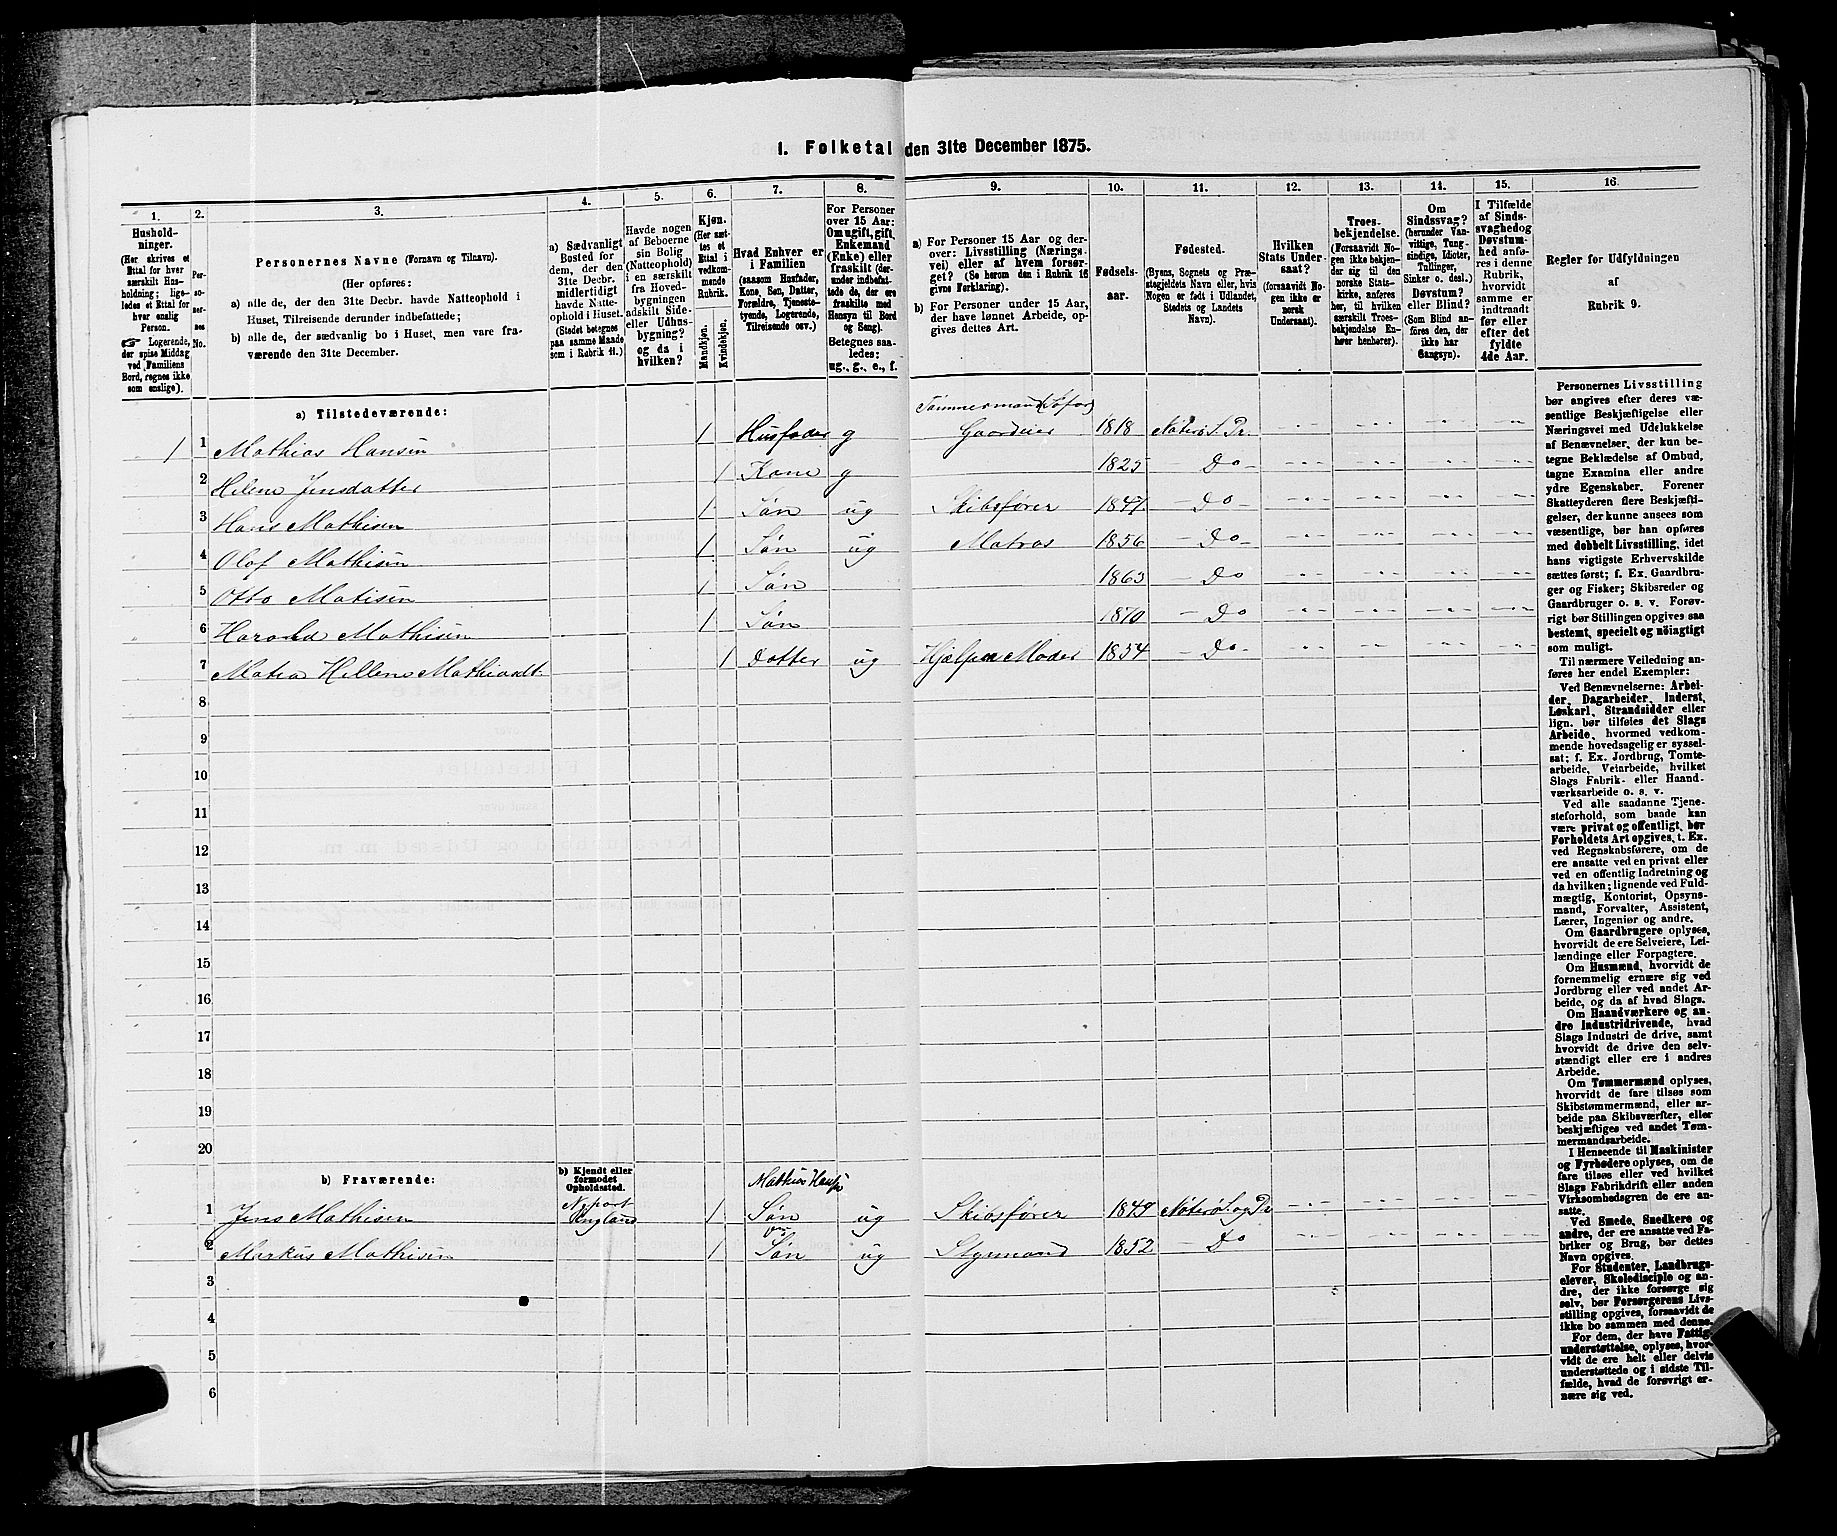 1. Folketal den 31te December 1875.
1.
2.
3.
4.
5.
6.
7.
8.
9.
10.
11.
12.
13.
14.
15.
16.
Hushold-
ninger.
(Her skrives et
Ettal for hver
særskilt Hus-
holdning; lige-
ledes et Ettal for
hver enslig
Person.
☞ Logerende,
der spise Middag
ved Familiens
Bord, regnes ikke
som enslige).
Per-
so-
ner-
nes
No.
Personernes Navne (Fornavn og Tilnavn).
(Her opføres:
a) alle de, der den 31te Decbr. havde Natteophold i
Huset, Tilreisende derunder indbefattede;
b) alle de, der sædvanlig bo i Huset, men vare fra-
værende den 31te December.
a) Sædvanligt
Bosted for
dem, der den
31te Decbr.
midlertidigt
havde Natte-
ophold i Huset.
(Stedet betegnes
paa samme Maade
som i Rubrik 11.)
Havde nogen
af Beboerne
sin Bolig
(Natteophold)
i en særskilt
fra Hoved-
bygningen
adskilt Side-
eller Udhus-
bygning?
og da i
hvilken?
Kjøn.
(Her sæt-
tes et
Ettal i
vedkom-
mende
Rubrik.
Mandkjøn.
Kvindekjøn.
Hvad Enhver er
i Familien
(saasom Husfader,
Kone, Søn, Datter,
Forældre, Tjeneste-
tyende, Logerende,
Tilreisende osv.)
For Personer
over 15 Aar:
Om ugift, gift,
Enkemand
(Enke) eller
fraskilt (der-
unde indbefat-
tede de, der ere
fraskilte med
Hensyn til Bord
og Seng).
Betegnes saa-
ledes:
ug., g., e., f.
a) For Personer 15 Aar og der-
over: Livsstilling (Nærings-
vei) eller af hvem forsør-
get? (Se herom den i Rubrik 16
givne Forklaring).
b) For Personer under 15 Aar,
der have lønnet Arbeide, op-
gives dettes Art.
Fødsels-
aar.
Fødested.
(Byens, Sognets og Præ-
stegjeldets Navn eller, hvis
Nogen er født i Udlandet,
Stedets og Landets
Navn).
Hvilken
Stats Under-
saat?
(forsaavidt No-
gen ikke er
norsk
Undersaat).
Troes-
bekjendelse.
(Forsaavidt No-
gen ikke bekjen-
der sig til den
norske Stats-
kirke, anføres
her, til hvilken
særskilt Troes-
bekjendelse En-
hver henhører).
Om
Sindssvag?
(herunder Van-
vittige, Tung-
sindige, Idioter,
Tullinger,
Sinker o. desl.)
Døvstum?
eller Blind?
(Som Blind an-
føres den, der
ikke har
Gangsyn).
I Tilfælde
af Sinds-
svaghed og
Døvstum-
hed anfø-
res i denne
Rubrik,
hvorvidt
samme er
indtraadt
før eller
efter det
fyldte
4de Aar.
Regler for Udfyldningen
af
Rubrik 9.
a) Tilstedeværende:
Tømmermand (Søfar)
1 1 Mathias Hansen 1 Husfader g Gaardeier 1818 Nøterø S. Pr.
2 Helene Jensdatter 1 Kone g 1825 - Do -
3 Hans Mathisen 1 Søn ug Skibsfører 1847 - Do -
4 Olof Mathisen 1 Søn ug Matros 1856 - Do -
5 Otto Matisen 1 Søn 1863 - Do
6 Harald Mathisen 1 Søn 1870 - Do
7 Matea Hellene Mathiasdt. 1 Datter ug Hjælper Moder 1854 - Do -
8
9
10
11
12
13
14
15
16
17
18
19
20
b) Fraværende:
b) Kjendt eller
formodet
Opholdssted.
Mathias Hansens
1 Jens Mathisen England 1 Søn ug Skibsfører 1849 Nøterø S. og Pr
2 Markus Mathisen 1 Søn ug Styrmand 1852 - Do
3
4
5
6
Personernes Livsstilling
bør angives efter deres væ-
sentlige Beskjæftigelse eller
Næringsvei med Udelukkelse
af Benævnelser, der kun be-
tegne Beklædelse af Ombud,
tagne Examina eller andre
ydre Egenskaber. Forener
Skatteyderen flere Beskjæfti-
gelser, der kunne ansees som
væsentlige, bør han opføres
med dobbelt Livsstilling, idet
hans vigtigste Erhvervskilde
sættes først; f. Ex. Gaardbru-
ger og Fisker; Skibsreder og
Gaardbruger o. s. v. Forøv-
rigt bør Stillingen opgives saa
bestemt, specielt og nøiagtigt
som muligt.
Til nærmere Veiledning an-
føres her endel Exempler:
Ved Benævnelserne: Arbei-
der, Dagarbeider, Inderst,
Løskarl, Strandsidder eller
lign. bør tilføies det Slags
Arbeide, hvormed vedkom-
mende hovedsagelig er syssel-
sat; f. Ex. Jordbrug, Tomte-
arbeide, Veiarbeide, hvilket
Slags Fabrik- eller Haand-
værksarbeide o. s. v.
Ved alle saadanne Tjene-
steforhold, som baade kan
være privat og offentligt, bør
Forholdets Art opgives, t. Ex.
ved Regnskabsførere, om de
ere ansatte ved en privat eller
ved en offentlig Indretning og
da hvilken; lignende ved Fuld-
mægtig, Kontorist, Opsyns-
mand, Forvalter, Assistent,
Lærer, Ingeniør og andre.
Om Gaardbrugere oplyses,
hvorvidt de ere Selveiere, Lei-
lændinge eller Forpagtere.
Om Husmænd, hvorvidt de
fornemmelig ernære sig ved
Jordbrug eller ved andet Ar-
beide, og da af hvad Slags.
Om Haandværkere og an-
dre Industridrivende, hvad
Slags Industri de drive, samt
hvorvidt de drive den selv-
stændigt eller ere i andres
Arbeide.
Om Tømmermænd oplyses,
hvorvidt de fare tilsøs som
Skibstømmermænd, eller ar-
beide paa Skibsværfter, eller
beskjæftiges ved andet Tøm-
mermandsarbeide.
I Henseende til Maskinister
og Fyrbødere oplyses, om de
fare tilsøs eller ved hvilket
Slags Fabrikdrift eller anden
Virksomhedsgren de ere an-
satte.
Ved Smede, Snedkere og
andre, der ere ansatte ved Fa-
briker og Brug, bør dettes
Navn opgives.
For Studenter, Landbrugs-
elever, Skoledisciple og an-
dre, der ikke forsørge sig
selv, bør Forsørgerens Livs-
stilling opgives, forsaavidt de
ikke bo sammen med denne.
For dem, der have Fattig-
understøttelse, oplyses, hvor-
vidt de ere helt eller delvis
understøttede og i sidste Til-
fælde, hvad de forøvrigt er-
nære sig ved.